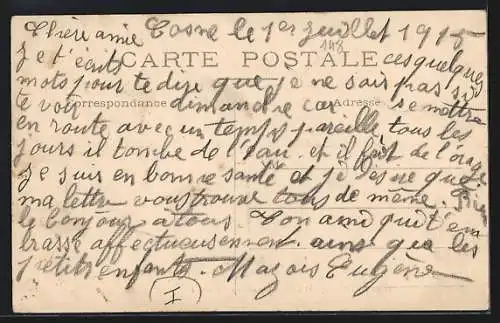 Chère amie Cosne le 1er Juillet 1915
148
CARTE POSTALE
Je t'écrits ces quelques
mots pour te dire que je ne sais pas si
Correspondance Adresse
te voir dimanche car se mettre
en route avec un temps pareille tous les
jours il tombe de l'eau et il fait de l'orage
je suis en bonne santé et je que
ma lettre vous trouve tous de même. Bien
le bonjour a tous. Ton ami qui t'em
brasse affectueusement ainsi que les
petits enfants. Mazois Eugène
I